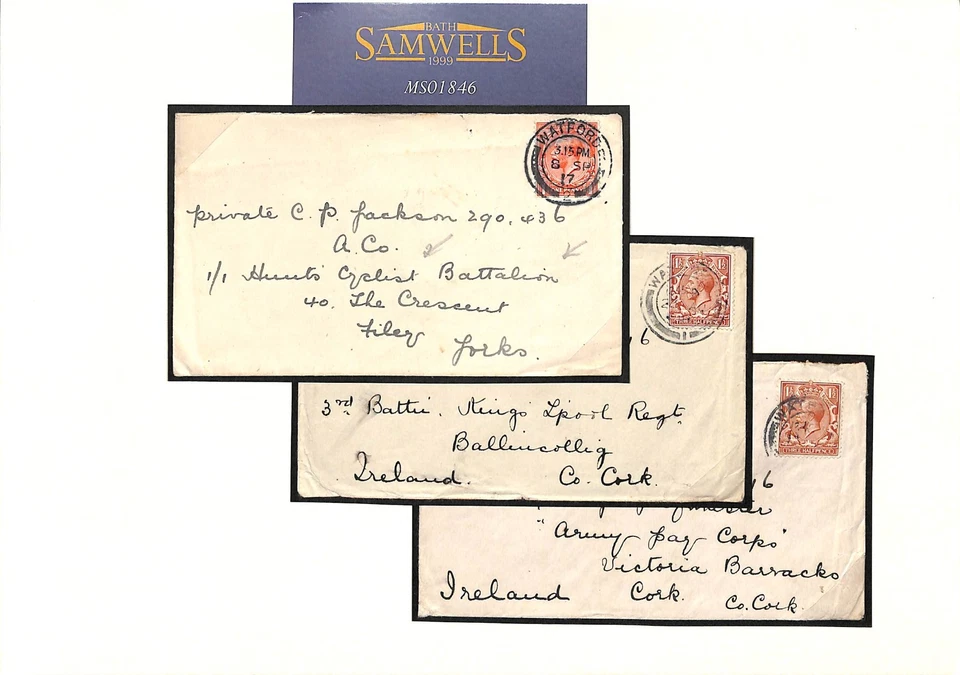 BATH
SAMWELLS
1999
MS01846
WATFORD
3.15 PM
8 SP
17
2
private C. P. Jackson 290,436
A. Co.
1/1 Hunts Cyclist Battalion
40. The Crescent
Filey
Yorks.
WA
1½ 1½
THREE HALFPENCE
1
, 6
3rd Battn. Kings Lpool Regt.
Ballincollig
Ireland. Co. Cork.
1½ 1½
WAT
THREE HALFPENCE
6
"Army Pay Corps"
Victoria Barracks
Ireland Cork. Co. Cork.